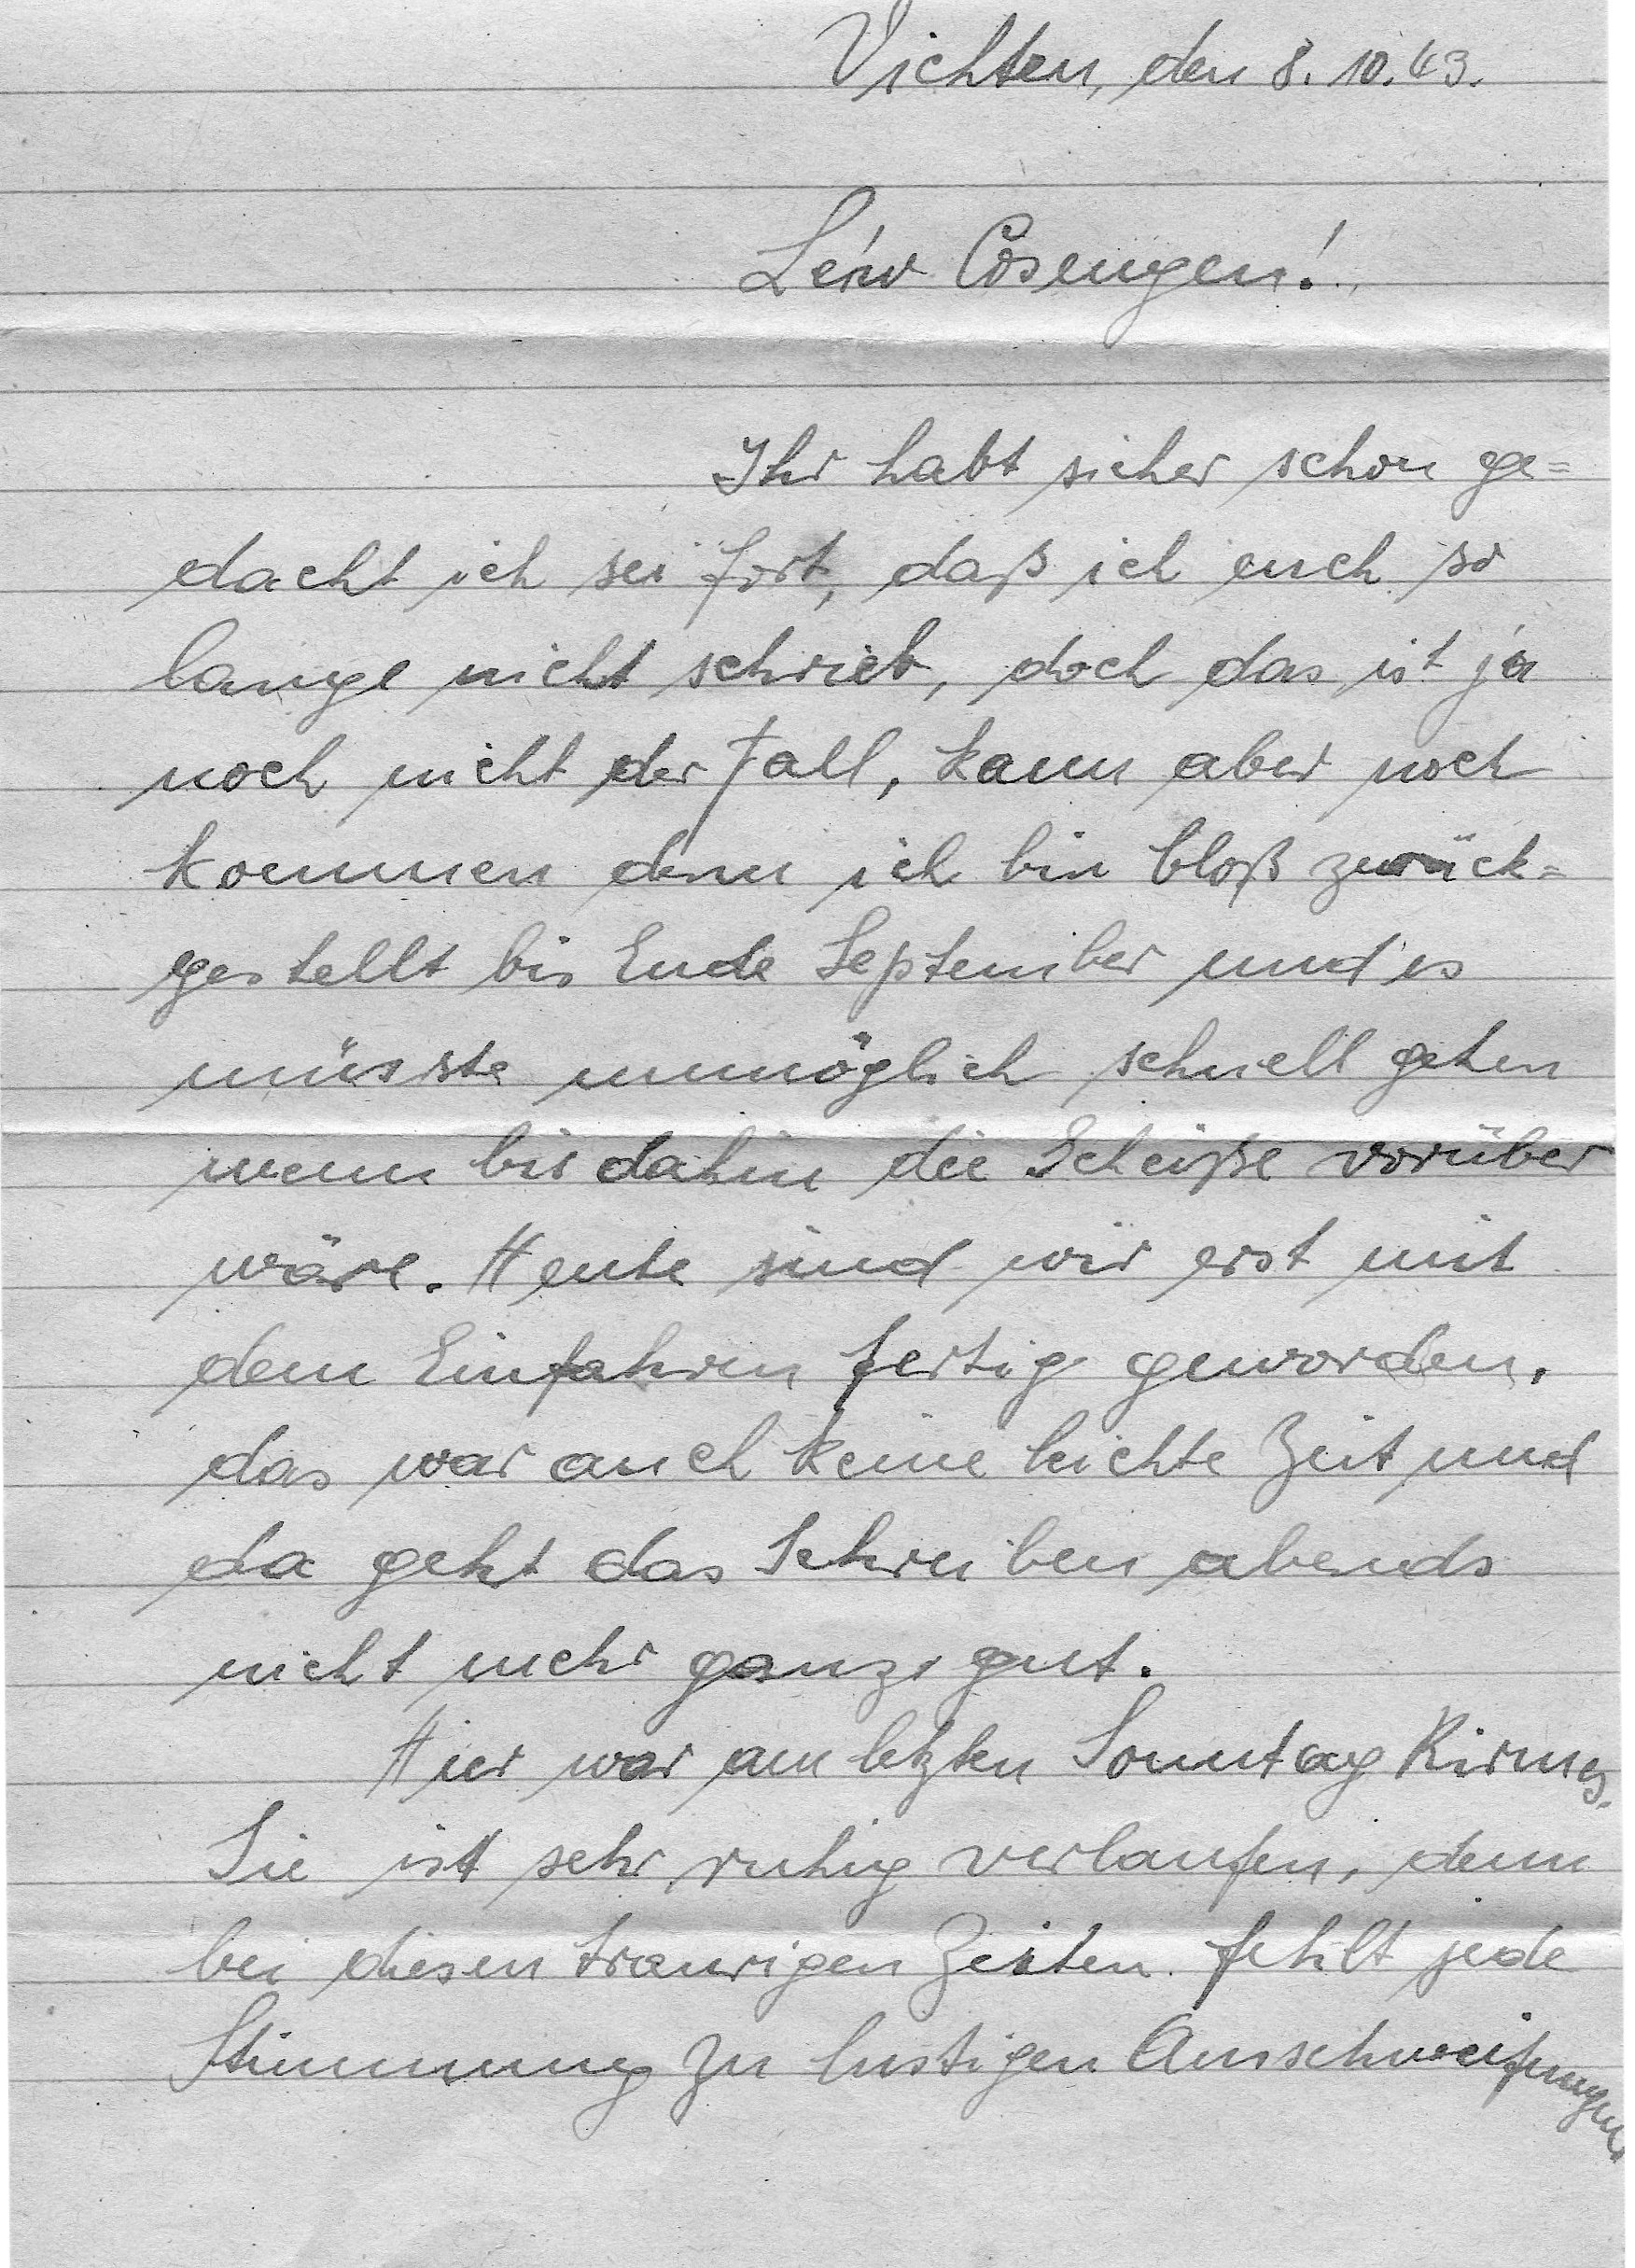 Vichten, den 8. 10. 43.
Léiw Cosengen!
Ihr habt sicher schon ge=
dacht ich sei fort, daß ich euch so
lange nicht schrieb, doch das ist ja
noch nicht der Fall, kann aber noch
kommen denn ich bin bloß zurück=
gestellt bis Ende September und es
müsste unmöglich schnell gehen
wenn bis dahin die Scheiße vorüber
wäre. Heute sind wir erst mit
dem Einfahren fertig geworden,
das war auch keine leichte Zeit und
da geht das Schreiben abends
nicht mehr ganz gut.
Hier war am letzten Sonntag Kirmes.
Sie ist sehr ruhig verlaufen, denn
bei diesen traurigen Zeiten fehlt jede
Stimmung zu lustigen Ausschweifungen